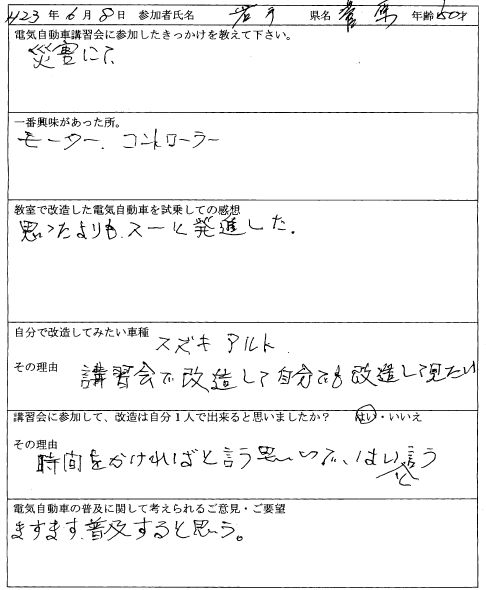 H23 年 6 月 8 日 参加者氏名 岩手 県名 菅原 年齢 60才
電気自動車講習会に参加したきっかけを教えて下さい。
災害にて
一番興味があった所。
モーター、コントローラー
教室で改造した電気自動車を試乗しての感想
思ったよりも、スーと発進した。
自分で改造してみたい車種
スズキ アルト
その理由
講習会で改造して自分でも改造して見たい
講習会に参加して、改造は自分1人で出来ると思いましたか? はい・いいえ
その理由
時間をかければと言う思いで、はいと言う
電気自動車の普及に関して考えられるご意見・ご要望
ますます、普及すると思う。